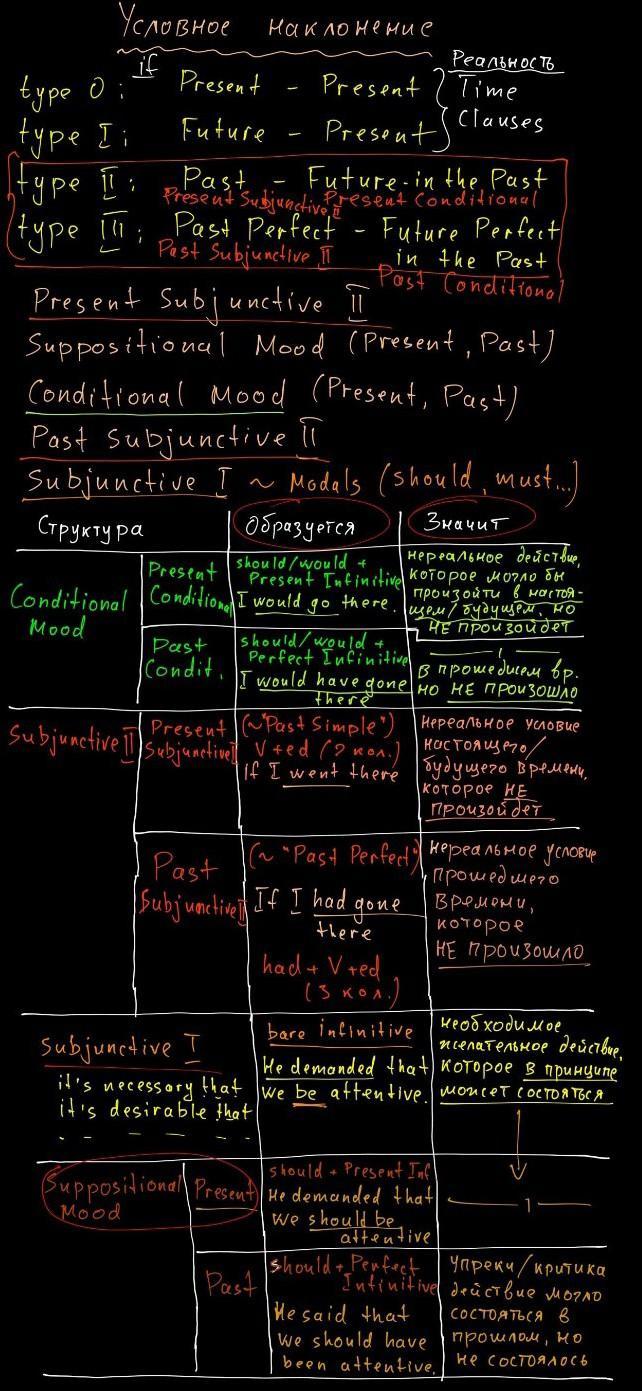 Условное наклонение
if
Реальность
type 0: Present - Present
Time
Clauses
type I: Future - Present
type II: Past - Future-in the Past
Present Subjunctive II Present Conditional
type III: Past Perfect - Future Perfect
in the Past
Past Subjunctive II
Past Conditional
Present Subjunctive II
Suppositional Mood (Present, Past)
Conditional Mood (Present, Past)
Past Subjunctive II
Subjunctive I ~ Modals (should, must...)
Структура
Образуется
Значит
Conditional
Mood
Present
Conditional
should/would +
Present Infinitive
I would go there.
нереальное действие,
которое могло бы
произойти в настоя-
щем/будущем, но
НЕ ПРОИЗОЙДЕТ
Past
Condit.
should/would +
Perfect Infinitive
I would have gone
there
— " —
в прошедшем вр.
но НЕ ПРОИЗОШЛО
Subjunctive II
Present
Subjunctive II
(~"Past Simple")
V+ed (2 кол.)
if I went there
Нереальное условие
настоящего/
будущего времени,
которое НЕ
ПРОИЗОЙДЕТ
Past
Subjunctive II
(~ "Past Perfect")
If I had gone
there
had + V+ed
(3 кол.)
нереальное условие
прошедшего
времени,
которое
НЕ ПРОИЗОШЛО
Subjunctive I
it's necessary that
it's desirable that
- - - - -
bare infinitive
He demanded that
we be attentive.
необходимое,
желательное действие,
которое в принципе
может состояться
Suppositional
Mood
Present
should + Present Inf
He demanded that
we should be
attentive
— " —
Past
should + Perfect
Infinitive
He said that
we should have
been attentive.
Упреки/критика
действие могло
состояться в
прошлом, но
не состоялось